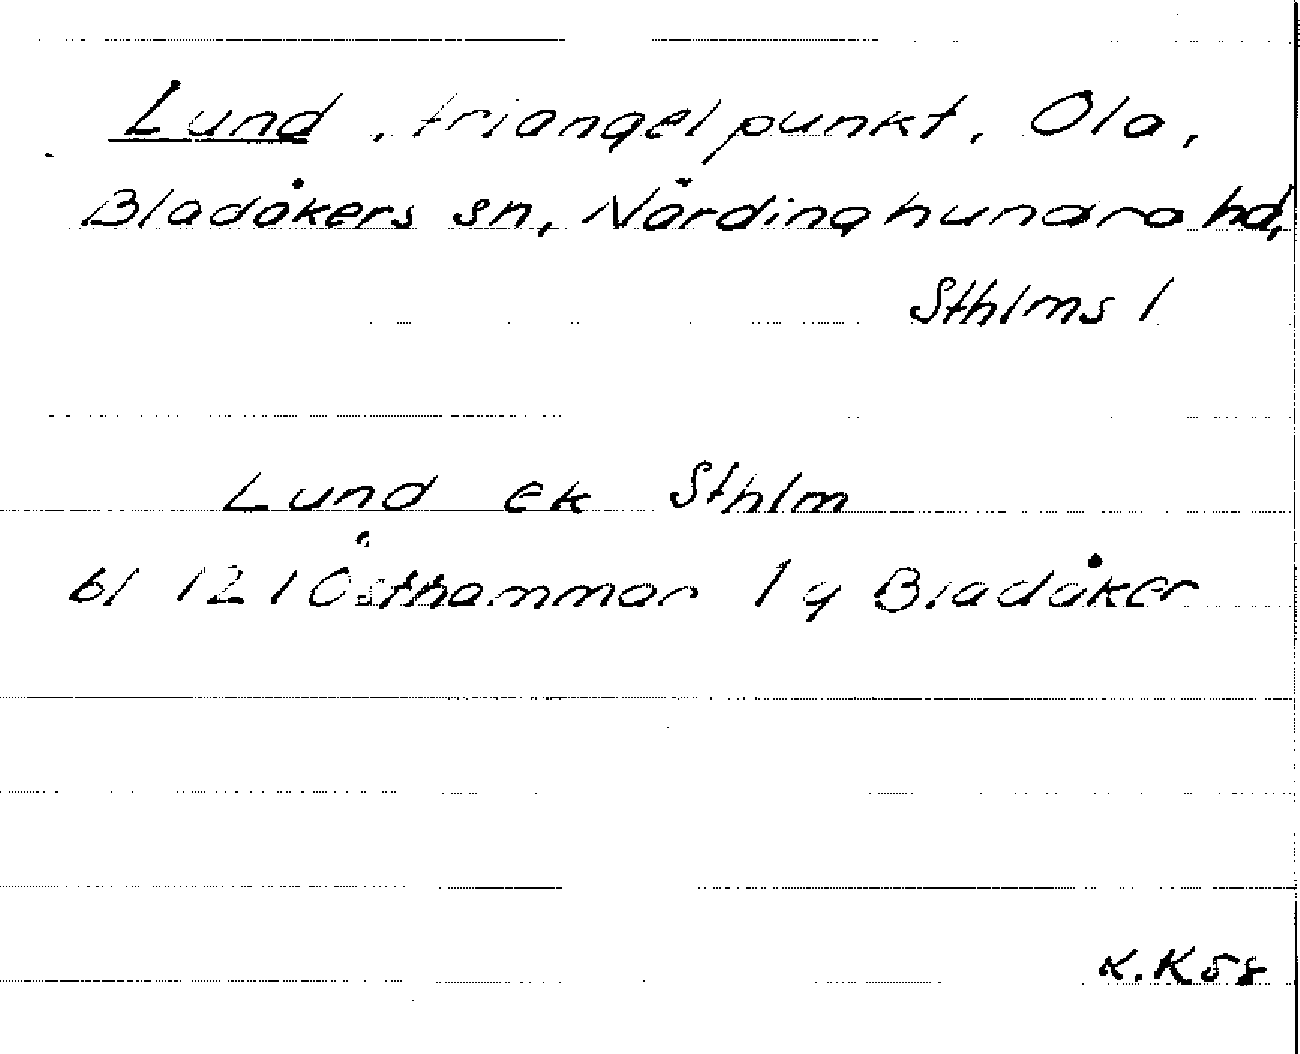 Lund, triangelpunkt, Ola,
Bladåkers sn, Närdinghundra hd,
Sthlms l
Lund ek Sthlm
bl 121 Östhammar 1 g Bladåker
K. K58